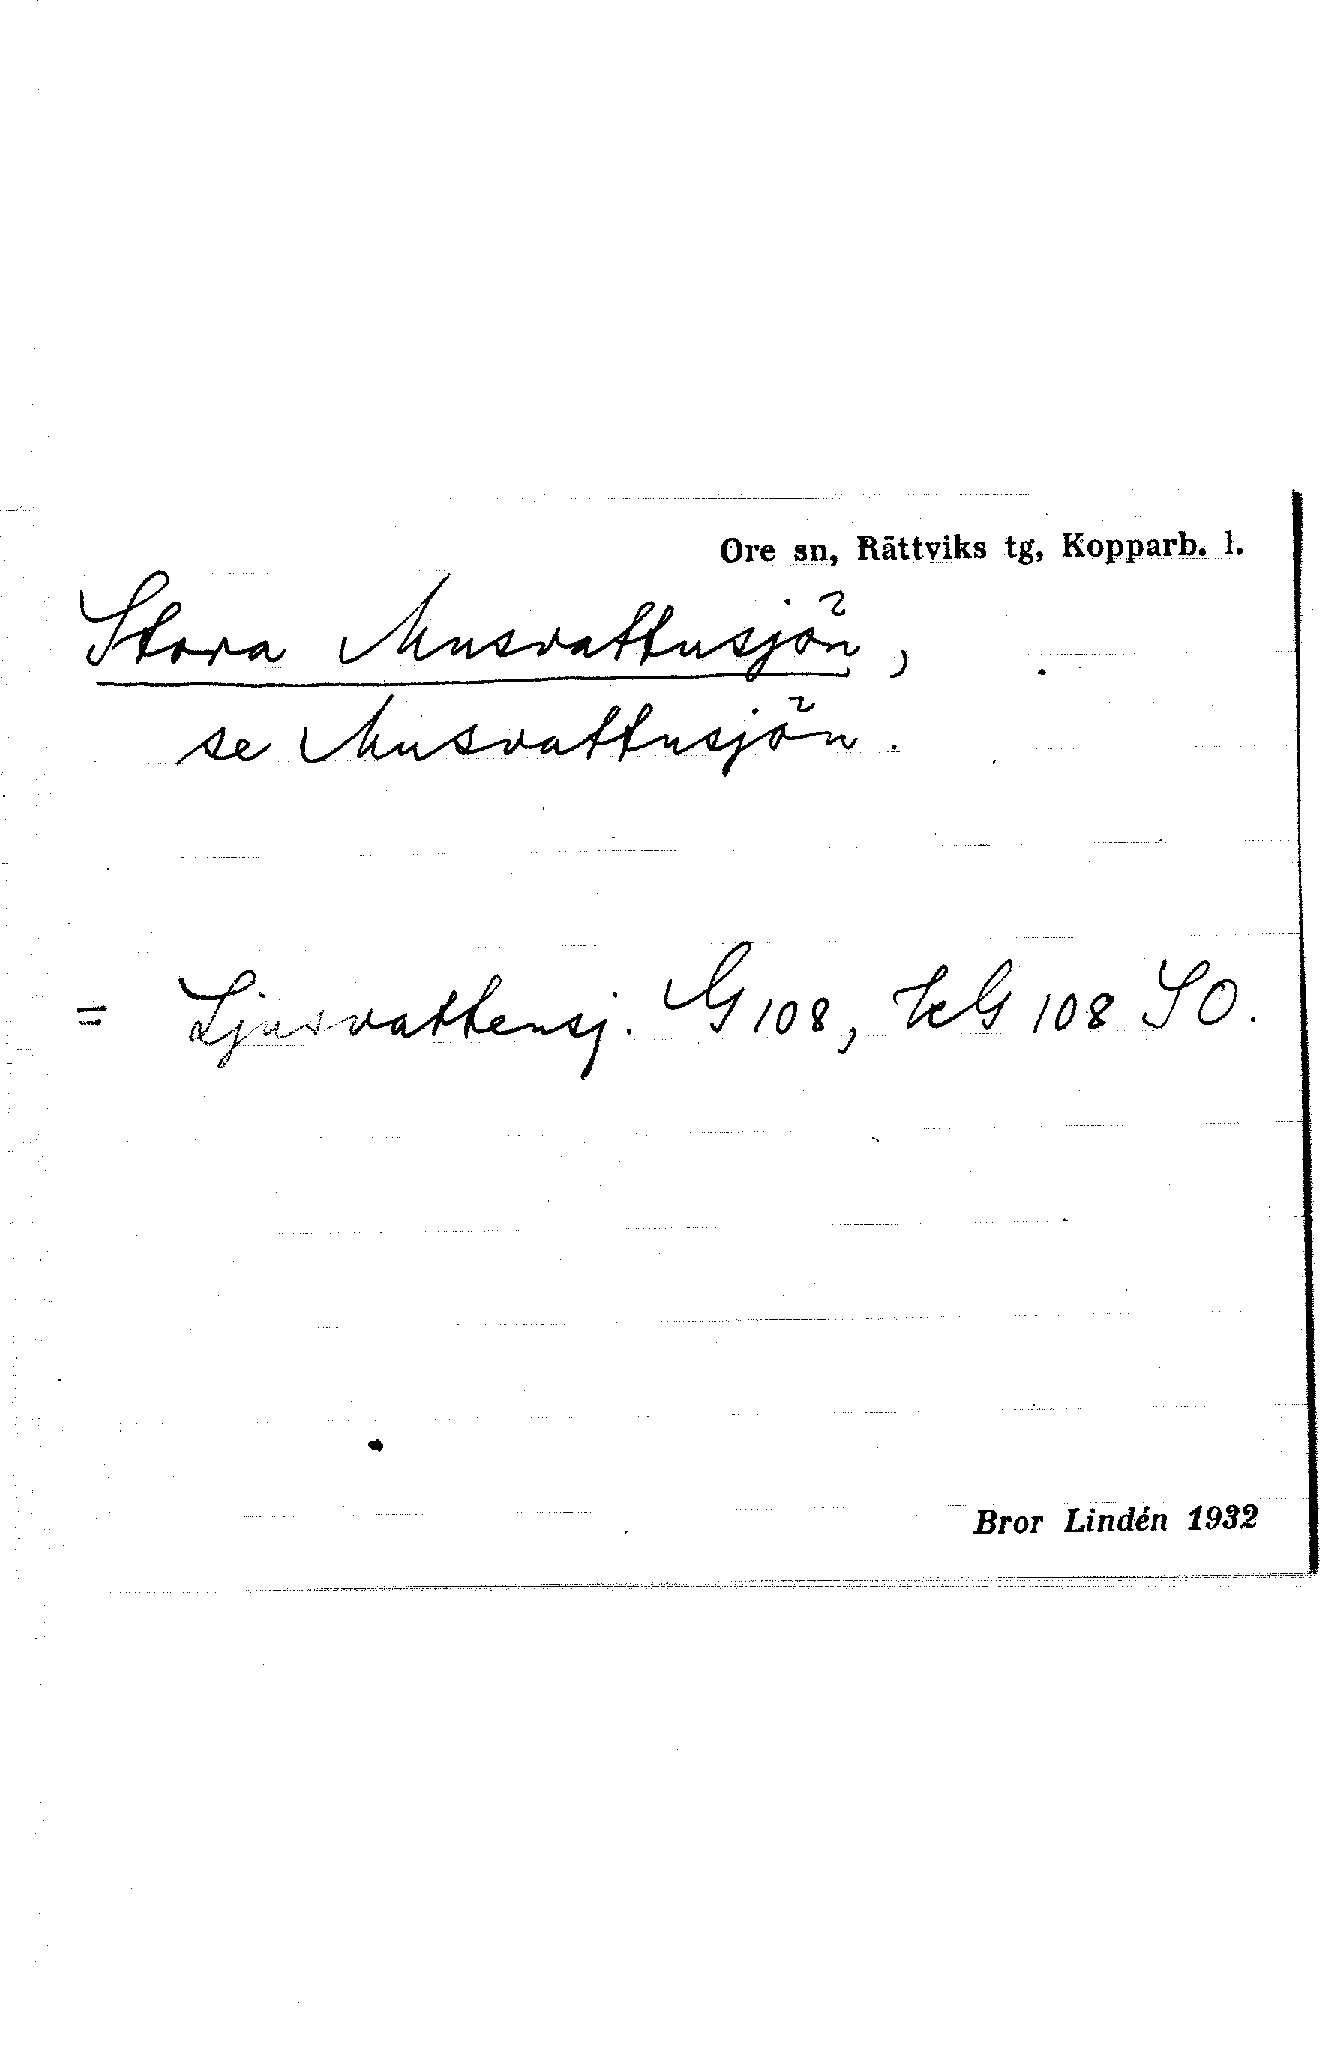 Ore sn, Rättviks tg, Kopparb. l.
Stora Musvattusjön,
se Musvattusjön.
= Ljusvattensj. G 108, HG 108 SO.
Bror Lindén 1932